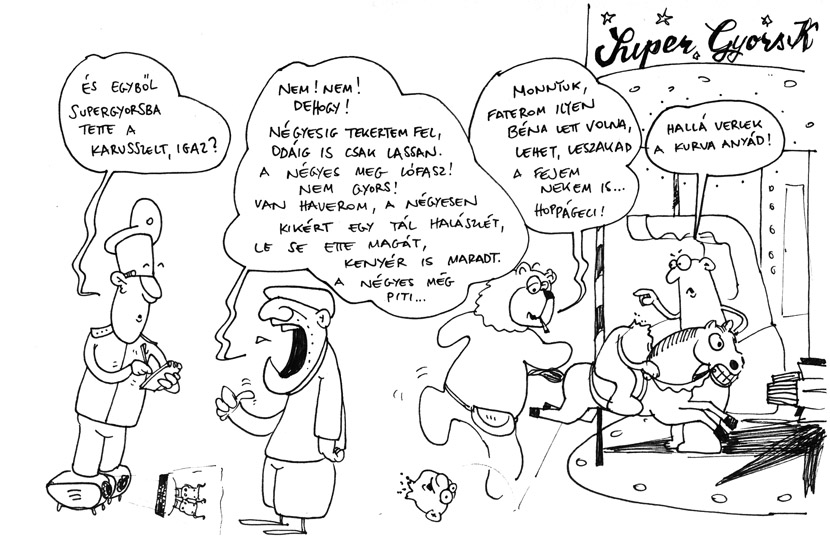 Super GyorsK
ÉS EGYBŐL
SUPERGYORSBA
TETTE A
KARUSSZELT, IGAZ?
NEM! NEM!
DEHOGY!
NÉGYESIG TEKERTEM FEL,
ODÁIG IS CSAK LASSAN.
A NÉGYES MEG LÓFASZ!
NEM GYORS!
VAN HAVEROM, A NÉGYESEN
KIKÉRT EGY TÁL HALÁSZLÉT,
LE SE ETTE MAGÁT,
KENYÉR IS MARADT.
A NÉGYES MÉG
PITI...
MONNYUK,
FATEROM ILYEN
BÉNA LETT VOLNA,
LEHET, LESZAKAD
A FEJEM
NEKEM IS...
HOPPÁGECI!
HALLÁ VERLEK
A KURVA ANYÁD!